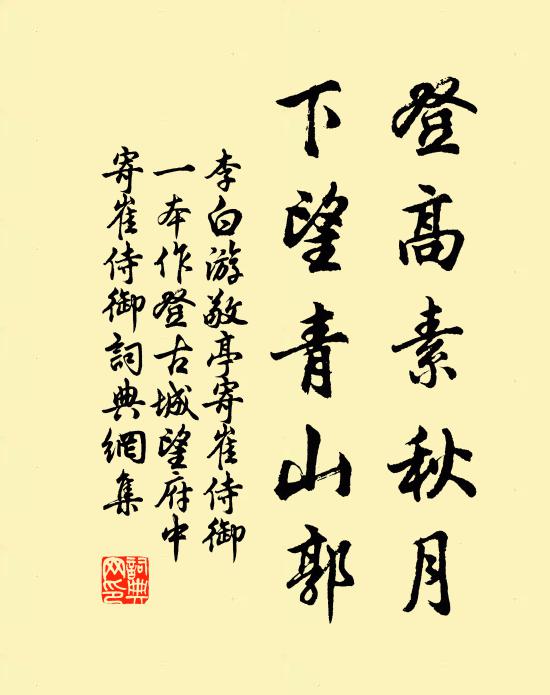 登高素秋月
下望青山郭
李白游敬亭寄崔侍御
一本作登古城望府中
寄崔侍御詞典網集
詞典
网印